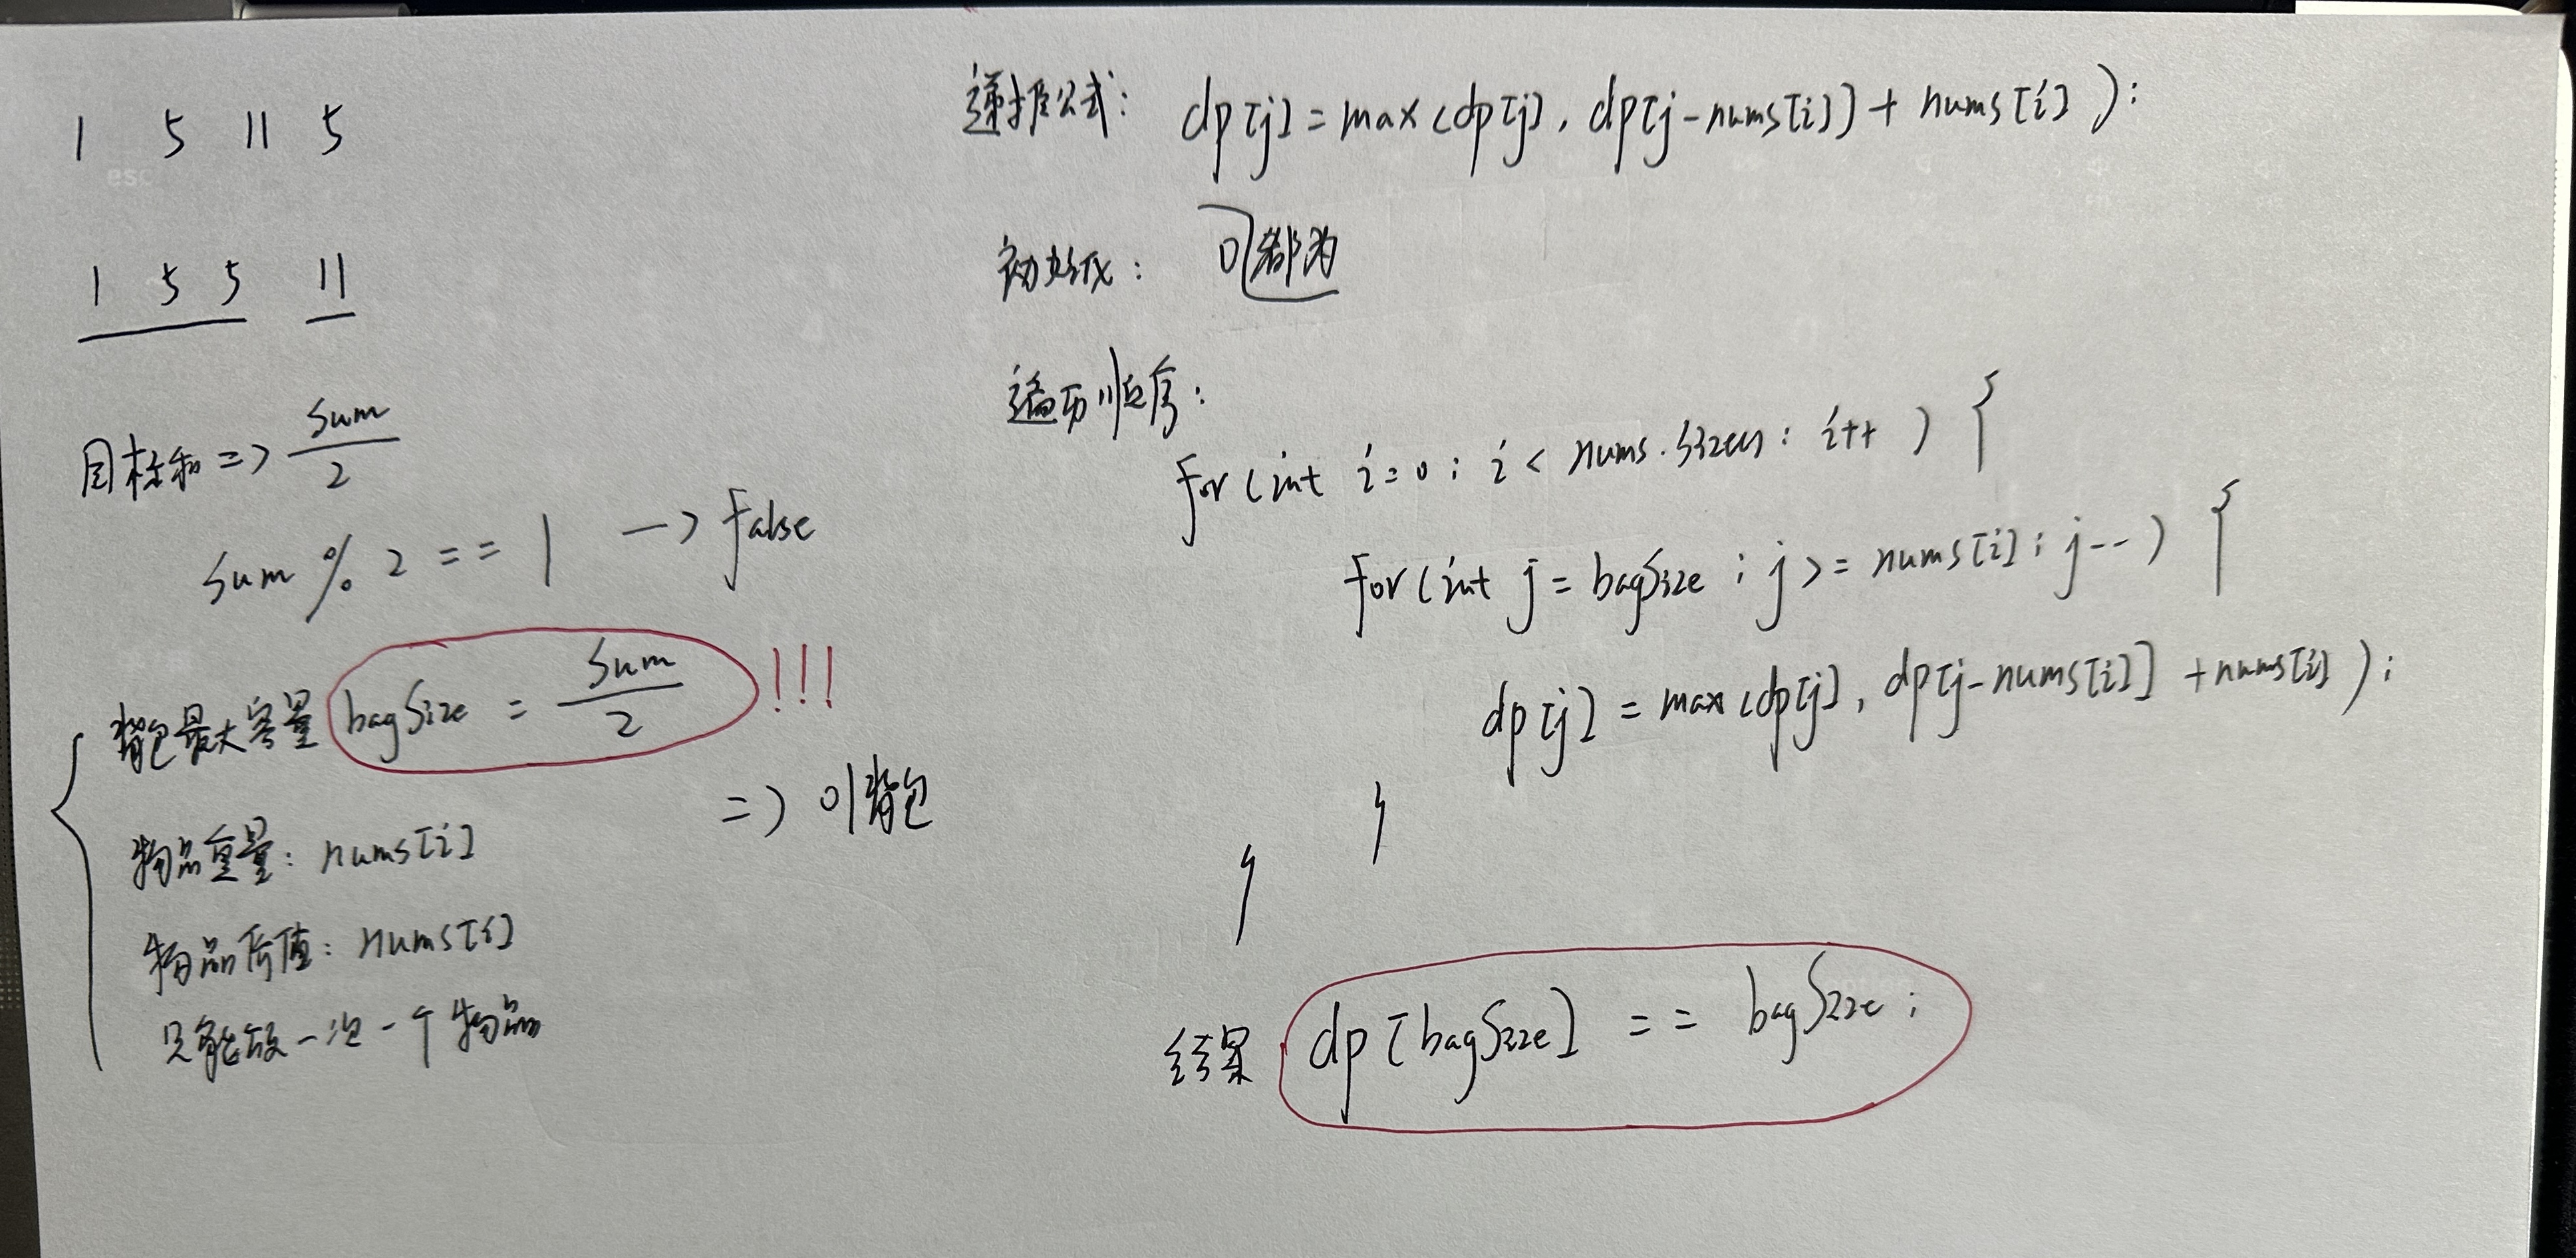 1 5 11 5
1 5 5 11
目标和 => sum/2
sum % 2 == 1 -> false
背包最大容量 bagSize = sum/2 !!!
=> 01背包
物品重量: nums[i]
物品价值: nums[i]
只能放一次一个物品
递推公式: dp[j] = max(dp[j], dp[j-nums[i]] + nums[i]);
初始化: 0都为
遍历顺序:
for (int i=0; i < nums.size(); i++) {
for (int j = bagSize; j >= nums[i]; j--) {
dp[j] = max(dp[j], dp[j-nums[i]] + nums[i]);
}
}
结果 dp[bagSize] == bagSize;